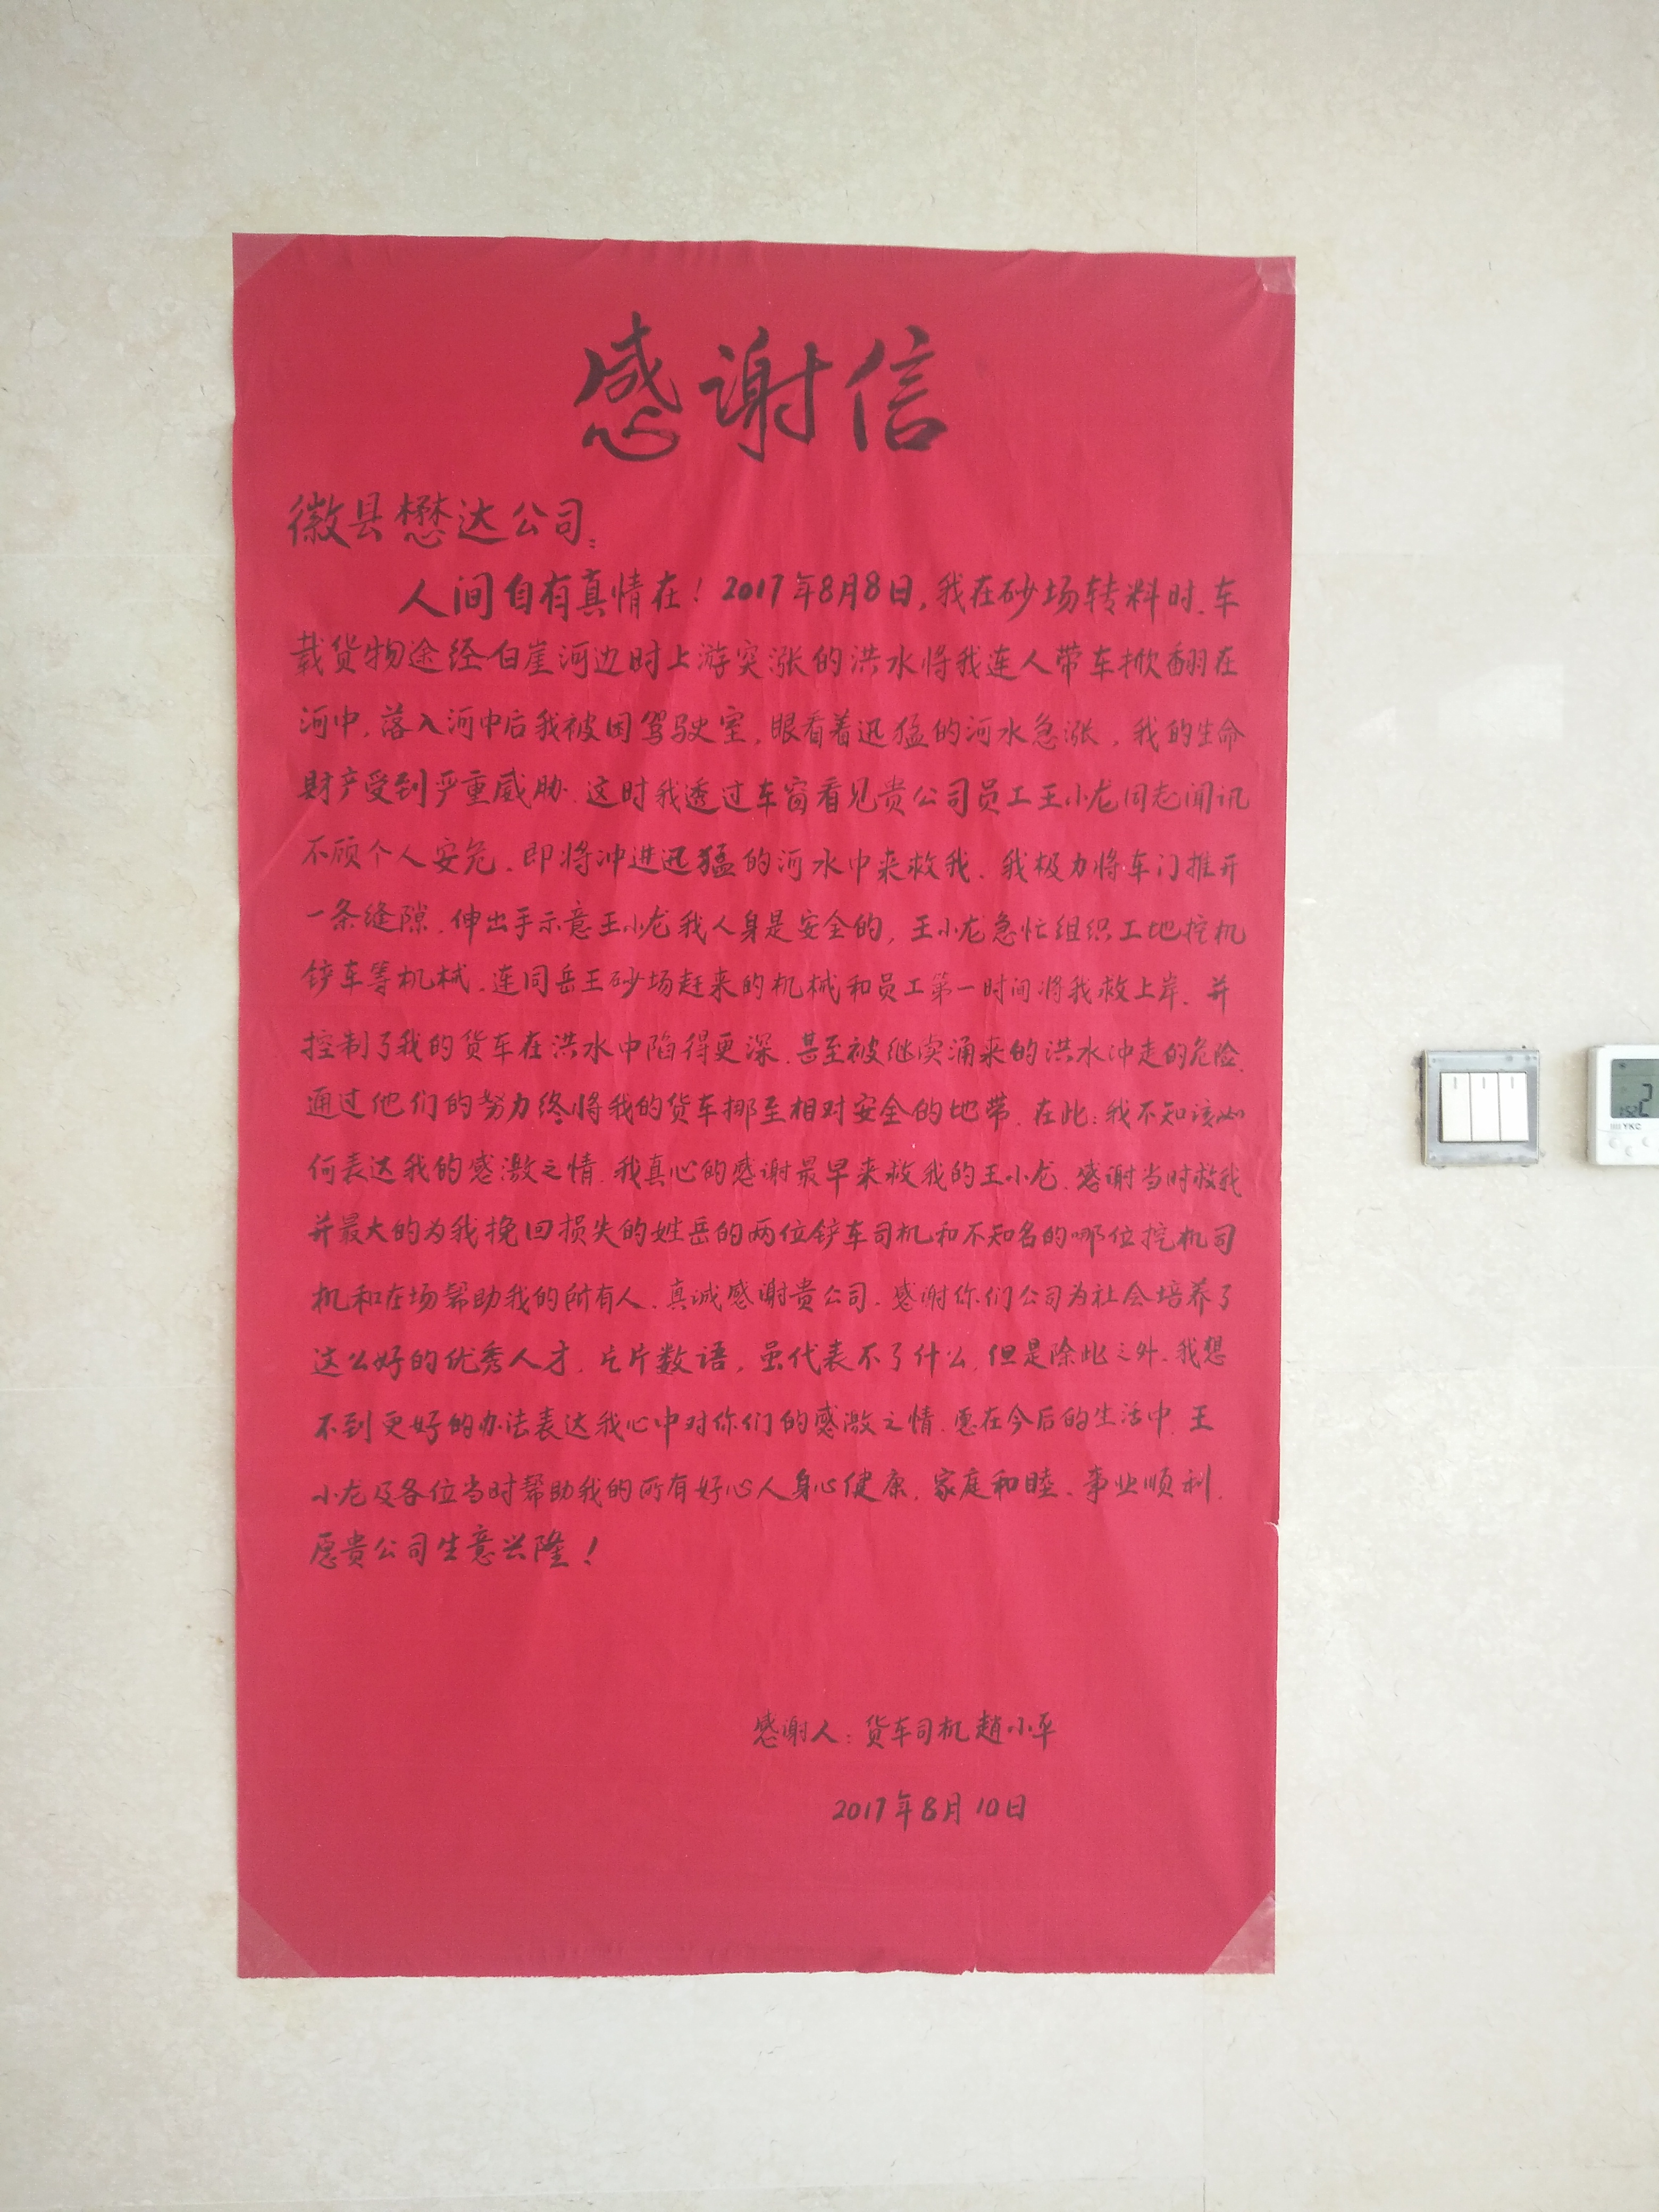 感谢信
徽县懋达公司:
人间自有真情在！2017年8月8日,我在砂场转料时.车
载货物途经白崖河边时上游突涨的洪水将我连人带车掀翻在
河中,落入河中后我被困驾驶室,眼看着迅猛的河水急涨,我的生命
财产受到严重威胁.这时我透过车窗看见贵公司员工王小龙同志闻讯
不顾个人安危.即将冲进迅猛的河水中来救我.我极力将车门推开
一条缝隙.伸出手示意王小龙我人身是安全的,王小龙急忙组织工地挖机
铲车等机械.连同岳王砂场赶来的机械和员工第一时间将我救上岸.并
控制了我的货车在洪水中陷得更深.甚至被继续涌来的洪水冲走的危险.
通过他们的努力终将我的货车挪至相对安全的地带.在此:我不知该如
何表达我的感激之情.我真心的感谢最早来救我的王小龙.感谢当时救我
并最大的为我挽回损失的姓岳的两位铲车司机和不知名的哪位挖机司
机和在场帮助我的所有人.真诚感谢贵公司.感谢你们公司为社会培养了
这么好的优秀人才.片片数语,虽代表不了什么.但是除此之外.我想
不到更好的办法表达我心中对你们的感激之情.愿在今后的生活中.王
小龙及各位当时帮助我的所有好心人身心健康.家庭和睦、事业顺利.
愿贵公司生意兴隆！
感谢人:货车司机赵小平
2017年8月10日
YKC